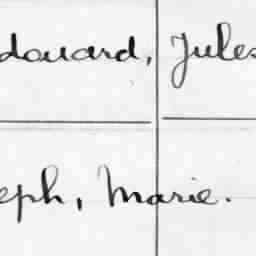 douard, Jules
eph, Marie.